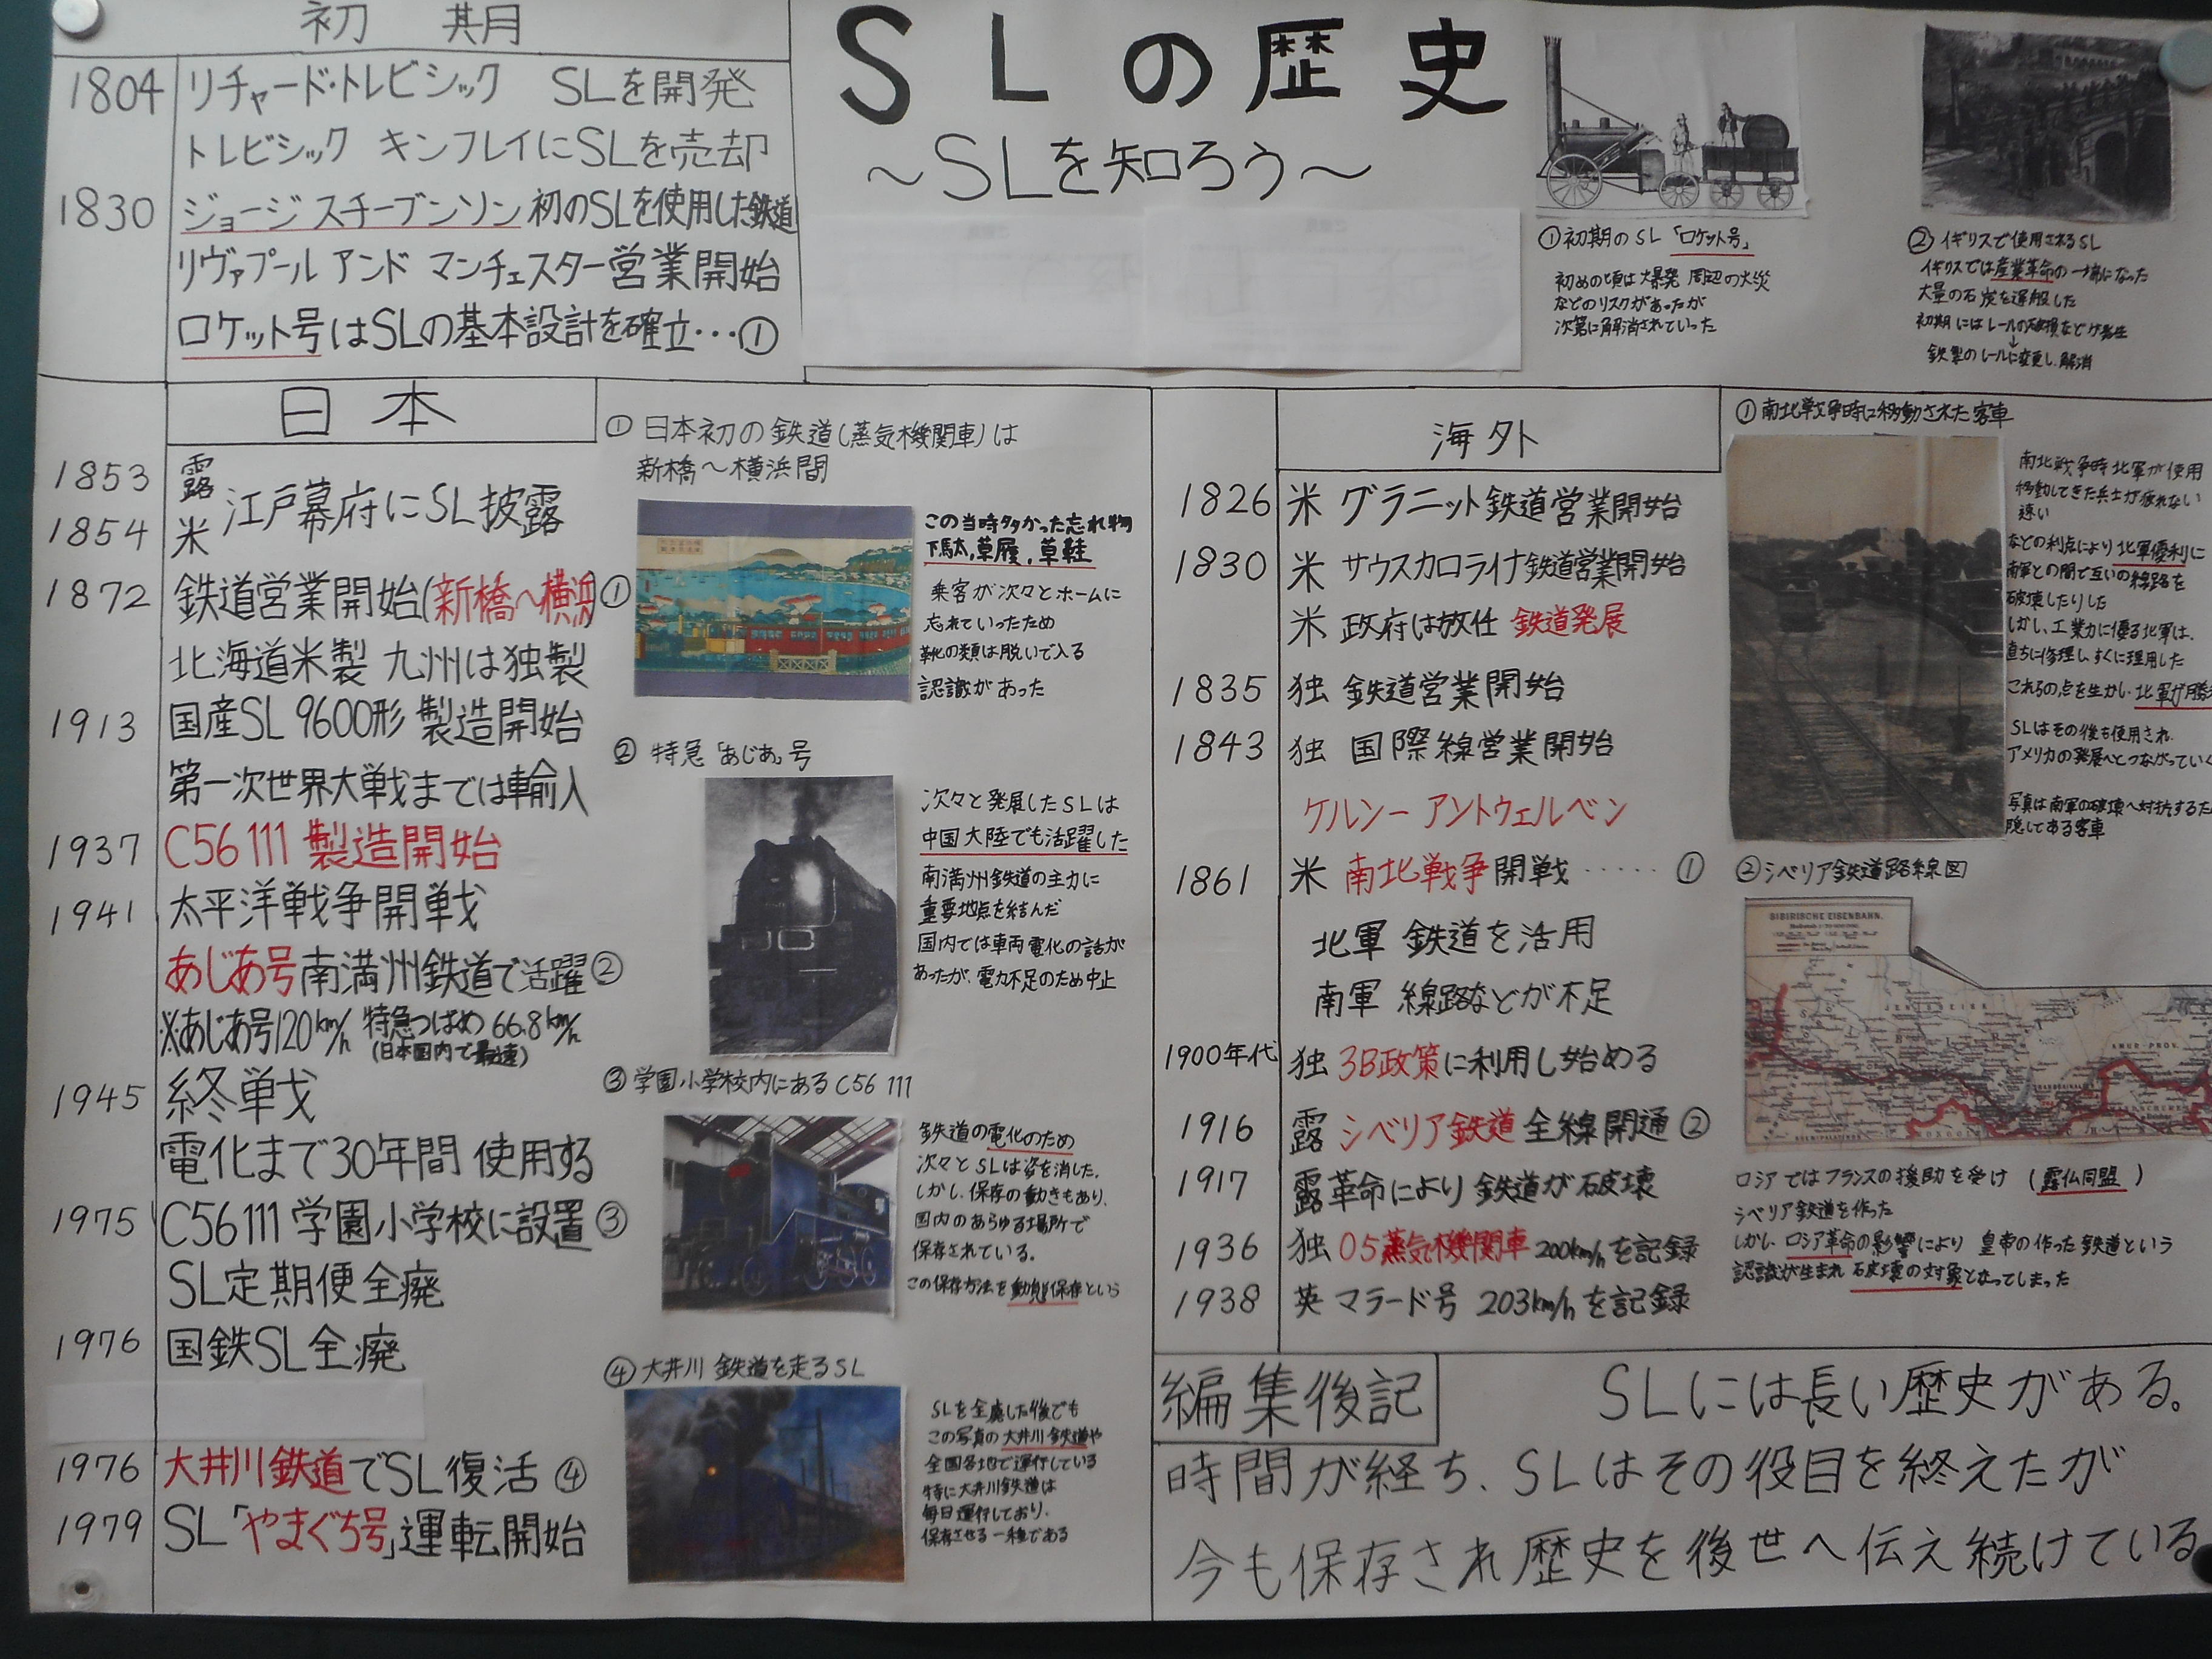 初 期
1804 リチャード・トレビシック SLを開発
トレビシック キンフレイにSLを売却
1830 ジョージ スチーブンソン 初のSLを使用した鉄道
リヴァプール アンド マンチェスター営業開始
ロケット号はSLの基本設計を確立…①
SLの歴史
～SLを知ろう～
①初期のSL「ロケット号」
初めの頃は爆発 周辺の火災
などのリスクがあったが
次第に解消されていった
②イギリスで使用されるSL
イギリスでは産業革命の一端になった
大量の石炭を運搬した
初期にはレールの破損などが発生
↓
鉄製のレールに変更し、解消
日本
1853 露
1854 米
江戸幕府にSL披露
1872 鉄道営業開始(新橋～横浜)①
北海道米製 九州は独製
1913 国産SL 9600形 製造開始
第一次世界大戦までは輸入
1937 C56 111 製造開始
1941 太平洋戦争開戦
あじあ号南満州鉄道で活躍②
※あじあ号120km/h 特急つばめ 66.8km/h
(日本国内で最速)
1945 終戦
電化まで30年間 使用する
1975 C56 111 学園小学校に設置③
SL定期便全廃
1976 国鉄SL全廃
1976 大井川鉄道でSL復活④
1979 SL「やまぐち号」運転開始
① 日本初の鉄道(蒸気機関車)は
新橋～横浜間
この当時多かった忘れ物
下駄,草履,草鞋
乗客が次々とホームに
忘れていったため
靴の類は脱いで入る
認識があった
② 特急「あじあ」号
次々と発展したSLは
中国大陸でも活躍した
南満州鉄道の主力に
重要地点を結んだ
国内では車両電化の話が
あったが、電力不足のため中止
③学園小学校内にあるC56 111
鉄道の電化のため
次々とSLは姿を消した.
しかし、保存の動きもあり、
国内のあらゆる場所で
保存されている。
この保存方法を 保存という
④大井川鉄道を走るSL
SLを全廃した後でも
この写真の大井川鉄道や
全国各地で運行している
特に大井川鉄道は
毎日運行しており、
保存させる一種である
海外
1826 米 グラニット鉄道営業開始
1830 米 サウスカロライナ鉄道営業開始
米 政府は放任 鉄道発展
1835 独 鉄道営業開始
1843 独 国際線営業開始
ケルンー アントウェルペン
1861 米 南北戦争開戦 ･････ ①
北軍 鉄道を活用
南軍 線路などが不足
1900年代 独 3B政策に利用し始める
1916 露 シベリア鉄道 全線開通②
1917 露 革命により 鉄道が破壊
1936 独 05蒸気機関車 200km/hを記録
1938 英 マラード号 203km/hを記録
①南北戦争時に移動された客車
南北戦争時北軍が使用
移動してきた兵士が疲れない
速い
などの利点により北軍優利に
南軍との間で互いの線路を
破壊したりした
しかし、工業力に優る北軍は、
直ちに修理し、すぐに理用した
これらの点を生かし、北軍が勝
SLはその後も使用され、
アメリカの発展へとつながっていく
写真は南軍の破壊へ対抗するた
隠してある客車
②シベリア鉄道路線図
SIBIRISCHE EISENBAHN.
AMUR-PROV.
ロシアではフランスの援助を受け (露仏同盟)
シベリア鉄道を作った
しかし ロシア革命の影響により 皇帝の作った鉄道という
認識が生まれ 破壊の対象となってしまった
編集後記 SLには長い歴史がある。
時間が経ち、SLはその役目を終えたが
今も保存され歴史を後世へ伝え続けている